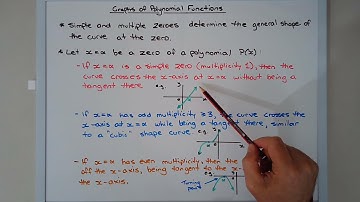 Graphs of Polynomial Functions
* Simple and multiple zeroes determine the general shape of
the curve at the zero.
* Let x=α be a zero of a polynomial P(x):
- If x=α is a simple zero (multiplicity 1), then the
curve crosses the x-axis at x=α without being a
tangent there.
e.g.
- If x=α has odd multiplicity ≥3, the curve crosses
the x-axis at x=α while being a tangent there, similar
to a "cubic" shape curve.
e.g.
- If x=α has even multiplicity, then the
off the x-axis, being tangent to the x-
the x-axis.
Turning
point